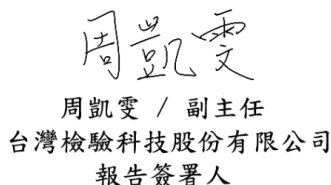 周凱雯
周凱雯 / 副主任
台灣檢驗科技股份有限公司
報告簽署人